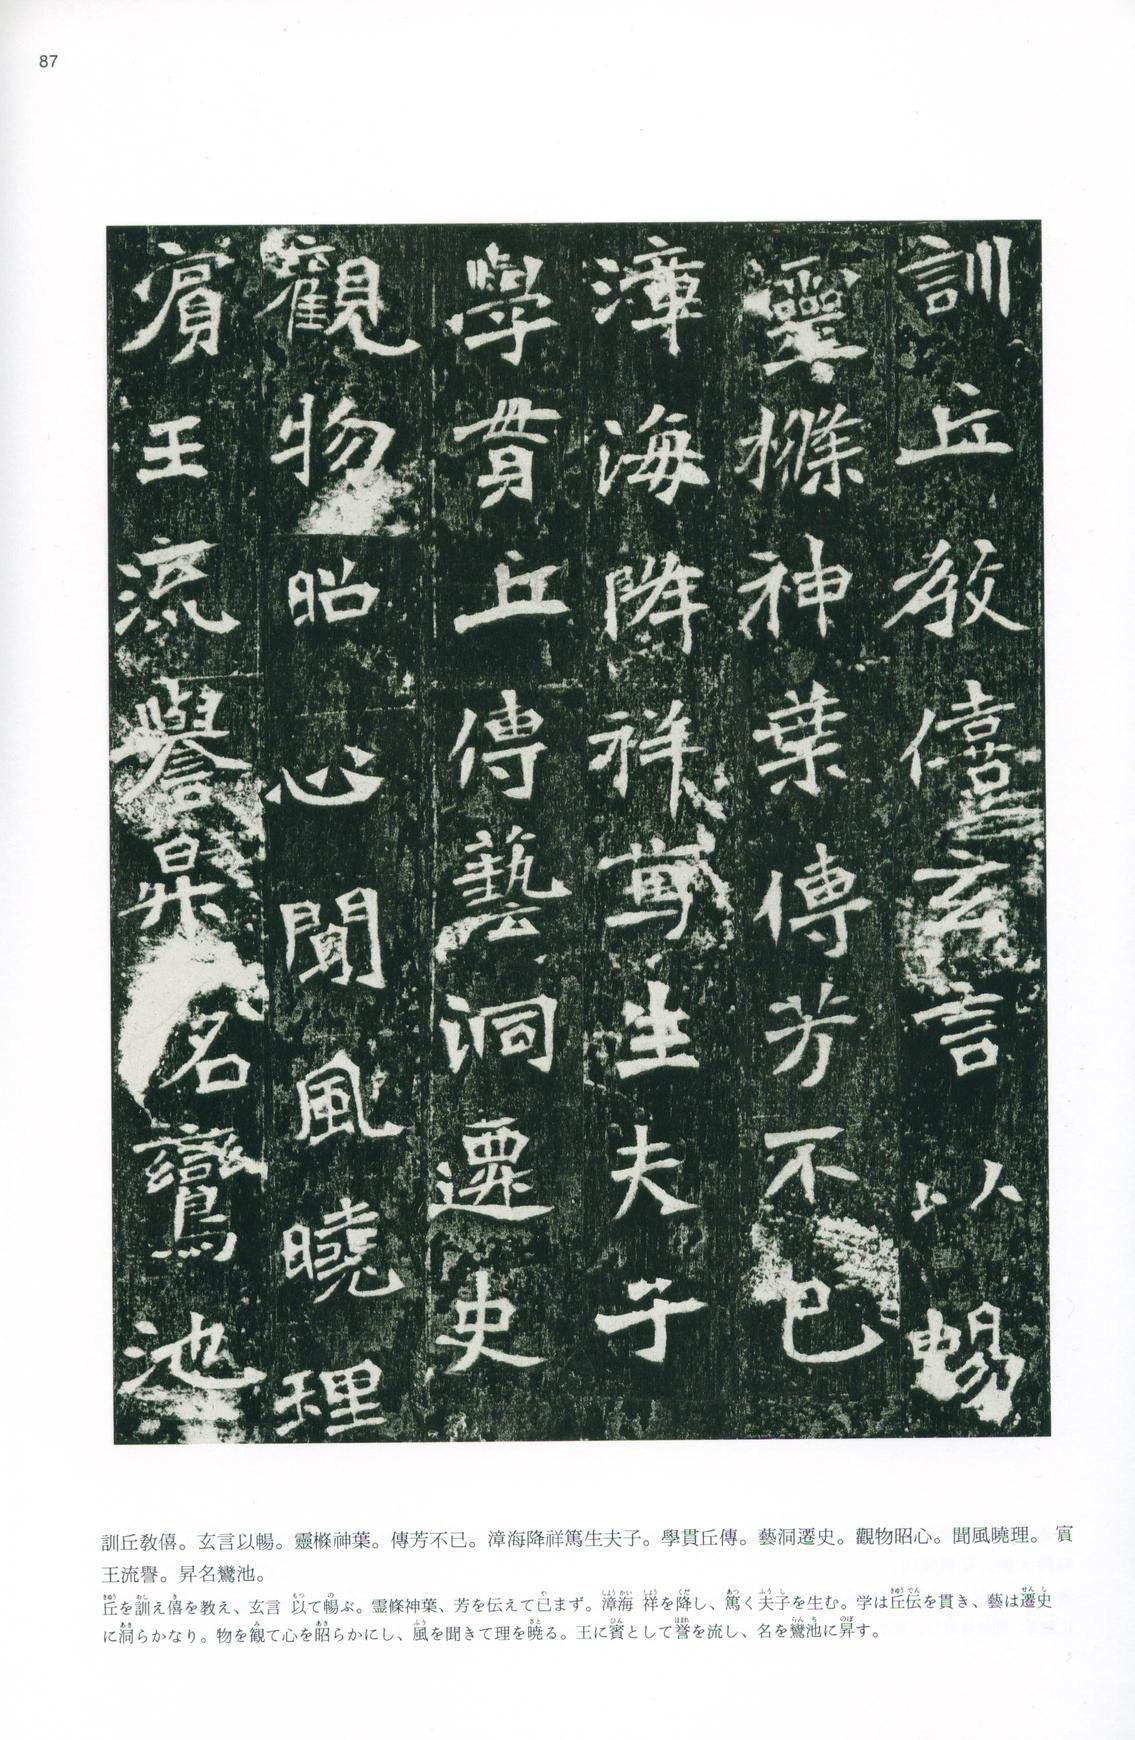 87
訓丘敎僖玄言以暢
靈樤神葉傳芳不已
漳海降祥篤生夫子
學貫丘傳藝洞遷史
觀物昭心聞風曉理
賓王流譽昇名鸞池
訓丘敎僖。玄言以暢。靈樤神葉。傳芳不已。漳海降祥篤生夫子。學貫丘傳。藝洞遷史。觀物昭心。聞風曉理。賓
王流譽。昇名鸞池。
丘を訓え僖を教え、玄言 以て暢ぶ。霊條神葉、芳を伝えて已まず。漳海 祥を降し、篤く夫子を生む。学は丘伝を貫き、藝は遷史
に洞らかなり。物を観て心を昭らかにし、風を聞きて理を暁る。王に賓として誉を流し、名を鸞池に昇す。